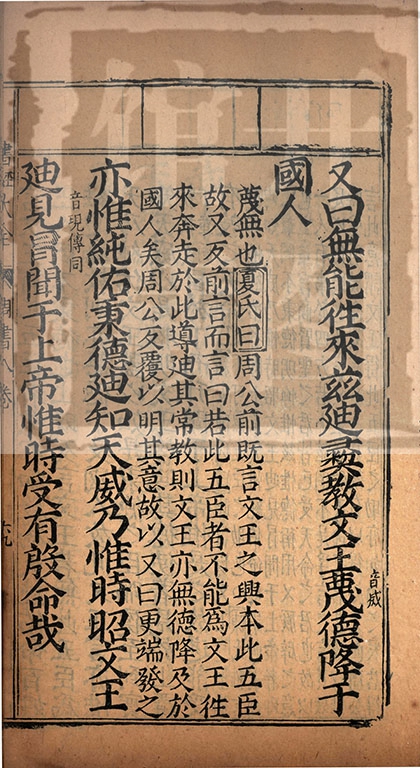 又曰無能徃來兹迪彛教文王蔑德降于
音烕
國人
蔑無也夏氏曰周公前既言文王之興本此五臣
故又反前言而言曰若此五臣者不能爲文王徃
來奔走於此導迪其常教則文王亦無德降及於
國人矣周公反覆以明其意故以又曰更端發之
亦惟純佑秉德迪知天威乃惟時昭文王
迪見冒聞于上帝惟時受有殷命哉
音現傳同
書經大全
周書八卷
六九